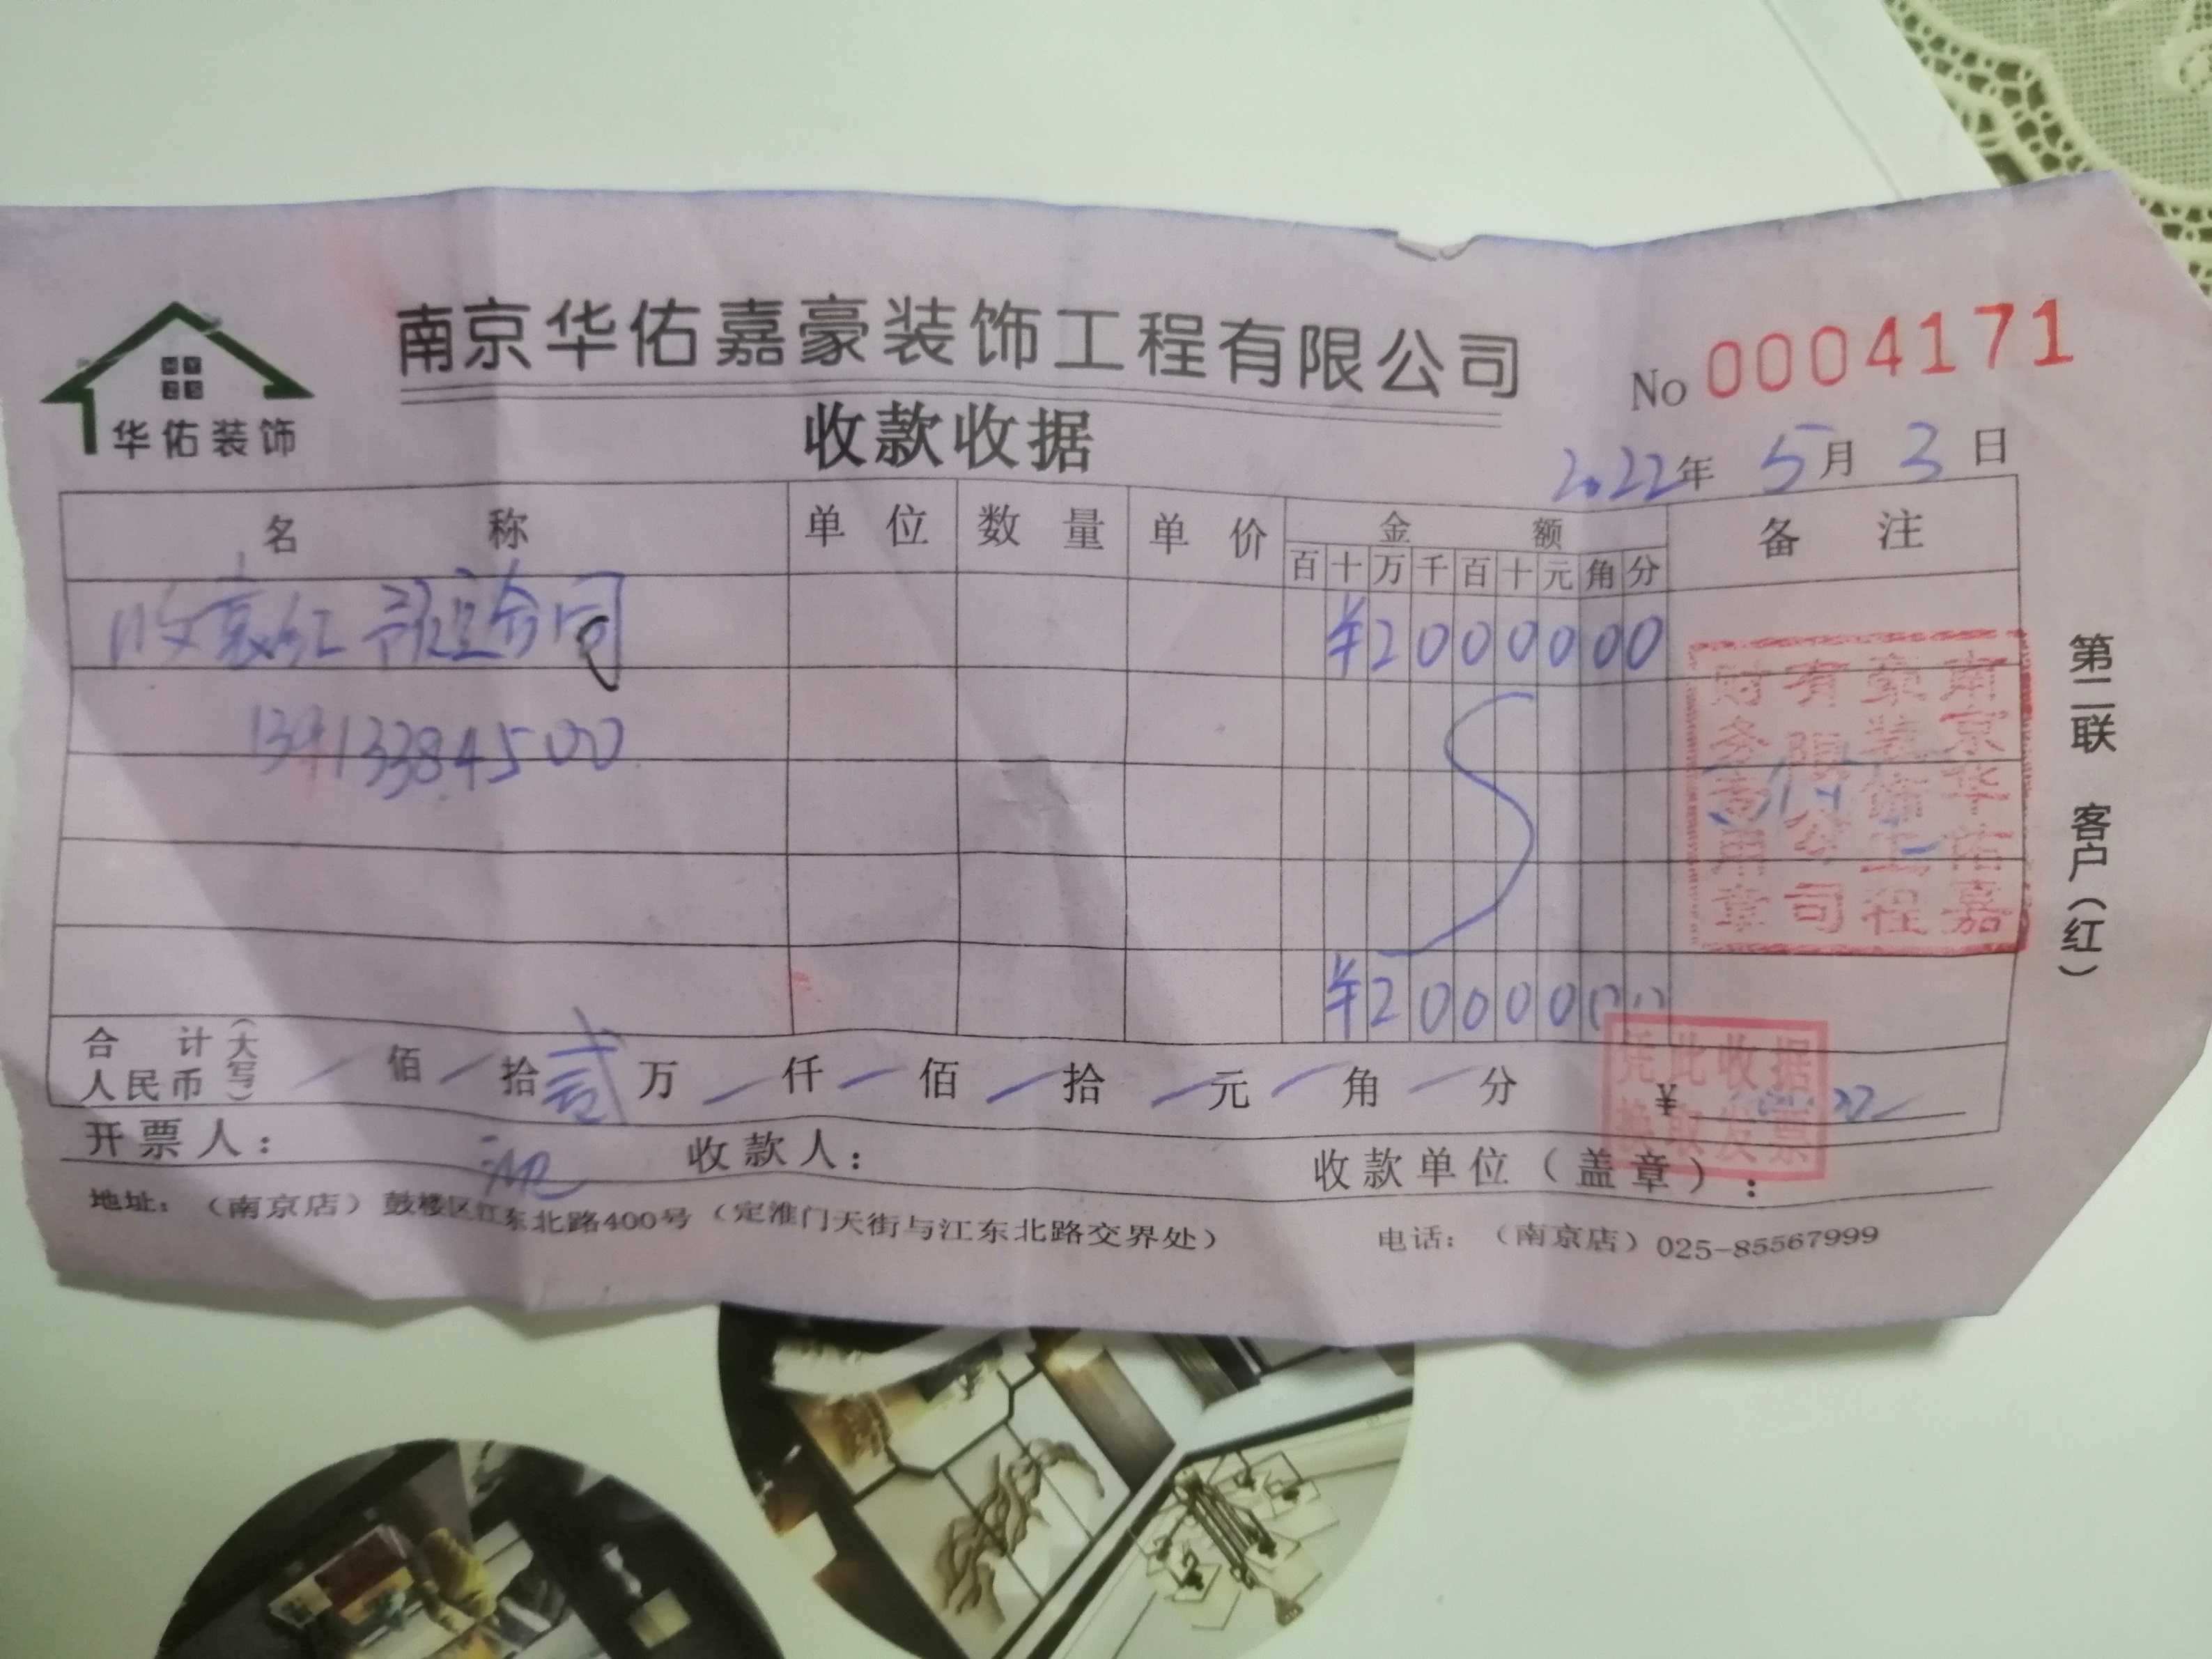 华佑装饰
南京华佑嘉豪装饰工程有限公司
收款收据
No 0004171
2022年 5月 3日
名 称 单 位 数 量 单 价 金 额 备 注
百 十 万 千 百 十 元 角 分
收 红 合同 ¥2000000
13913384500
¥2000000
南京华佑嘉
豪装饰工程
有限公司
财务专用章
第二联 客户(红)
合 计 人民币 (大写) 佰 拾 贰 万 仟 佰 拾 元 角 分 ¥
凭此收据
换取发票
开票人: 收款人: 收款单位(盖章):
地址: (南京店) 鼓楼区江东北路400号 (定淮门天街与江东北路交界处) 电话: (南京店) 025-85567999